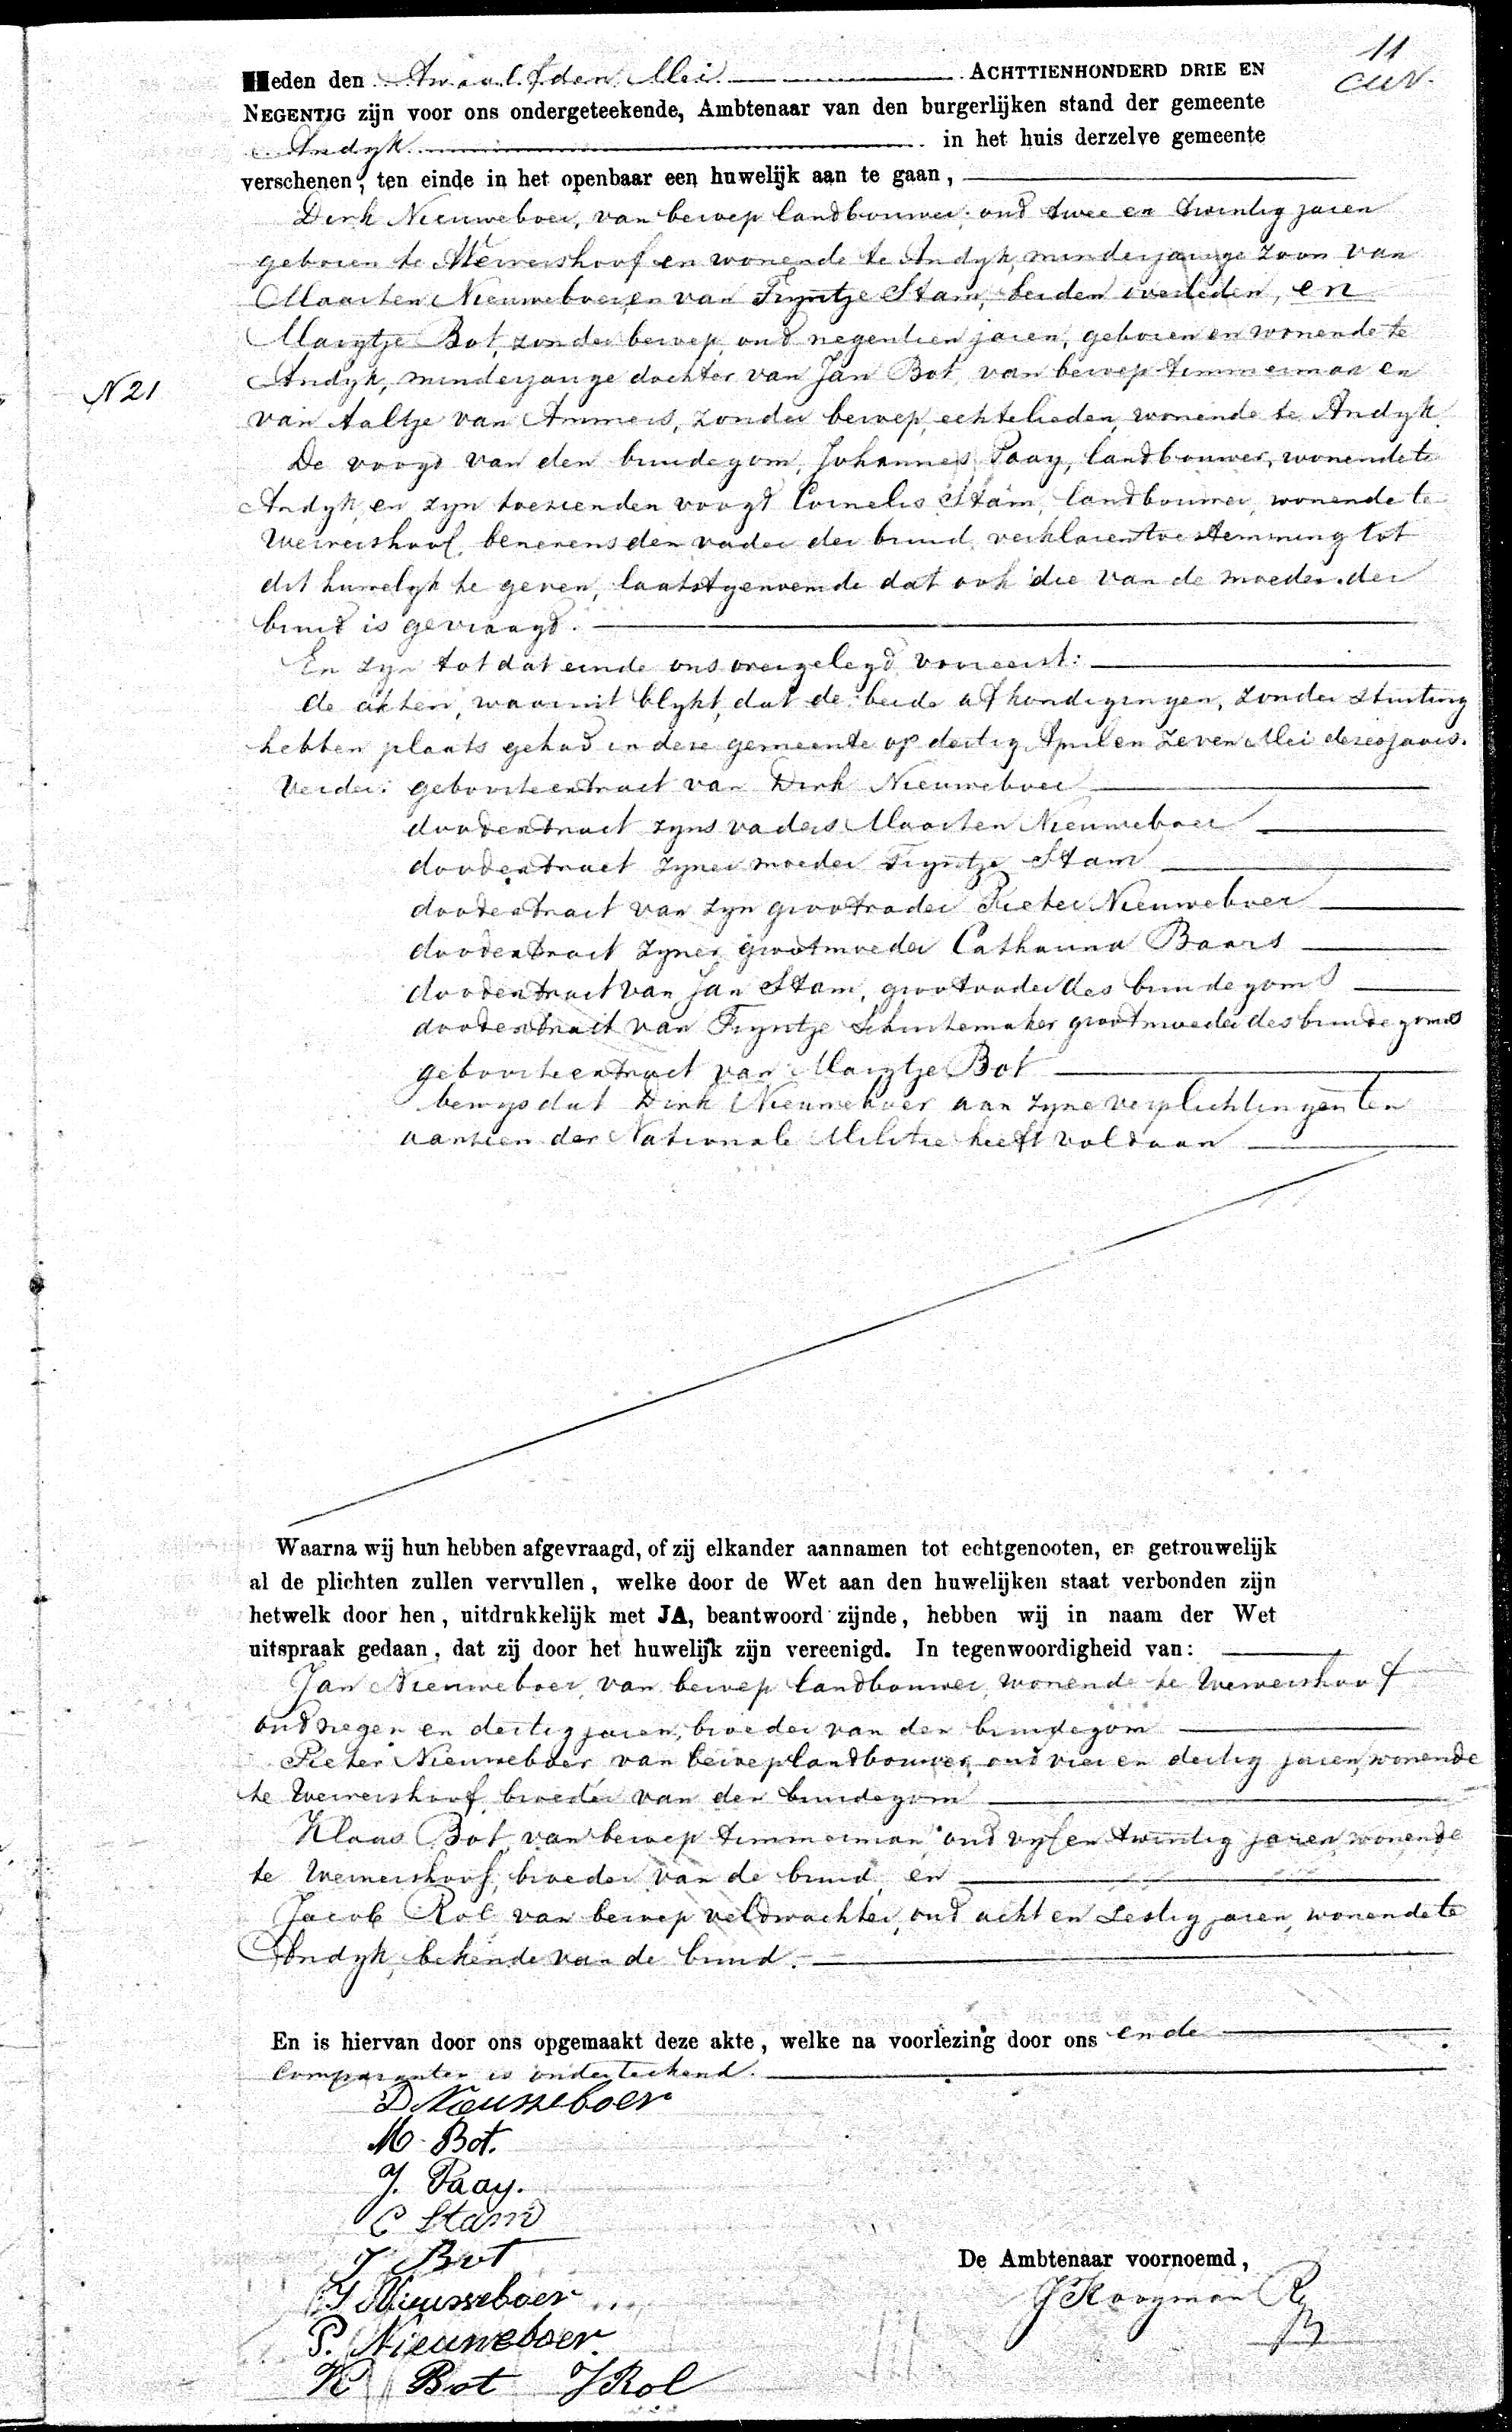 11
Heden den Twaalfden Mei ACHTTIENHONDERD DRIE EN
NEGENTIG zijn voor ons ondergeteekende, Ambtenaar van den burgerlijken stand der gemeente
Andyk in het huis derzelve gemeente
verschenen, ten einde in het openbaar een huwelijk aan te gaan,
Dirk Nieuweboer, van beroep landbouwer, oud twee en twintig jaren
geboren te Wervershoof en wonende te Andyk, minderjarige zoon van
Maarten Nieuweboer, en van Tryntje Stam, beiden overleden, en
Marytje Bot, zonder beroep, oud negentien jaren, geboren en wonende te
N 21
Andyk, minderjarige dochter van Jan Bot, van beroep timmerman en
van Aaltje van Ammers, zonder beroep, echtelieden, wonende te Andyk.
De voogd van den bruidegom, Johannes Paay, landbouwer, wonende te
Andyk, en zyn toezienden voogd Cornelis Stam, landbouwer, wonende te
Wervershoof, benevens den vader der bruid, verklaren toestemming tot
dit huwelyk te geven, laatstgenoemde dat ook die van de moeder der
bruid is gevraagd.
En zyn tot dat einde ons overgelegd vooreerst:
de akten, waaruit blykt, dat de beide afkondigingen, zonder stuiting
hebben plaats gehad in deze gemeente op dertig April en zeven Mei dezes jaars.
Verder: geboorteextract van Dirk Nieuweboer
doodextract zyns vaders Maarten Nieuweboer
doodextract zyner moeder Tryntje Stam
doodextract van zyn grootvader Pieter Nieuweboer
doodextract zyner grootmoeder Catharina Baars
doodextract van Jan Stam, grootvader des bruidegoms
doodextract van Tryntje Schuitemaker grootmoeder des bruidegoms
geboorteextract van Marytje Bot
bewys dat Dirk Nieuweboer aan zyne verplichtingen ten
aanzien der Nationale Militie heeft voldaan
Waarna wij hun hebben afgevraagd, of zij elkander aannamen tot echtgenooten, en getrouwelijk
al de plichten zullen vervullen, welke door de Wet aan den huwelijken staat verbonden zijn
hetwelk door hen, uitdrukkelijk met JA, beantwoord zijnde, hebben wij in naam der Wet
uitspraak gedaan, dat zij door het huwelijk zijn vereenigd. In tegenwoordigheid van:
Jan Nieuweboer, van beroep landbouwer, wonende te Wervershoof
oud negen en dertig jaren, broeder van den bruidegom
Pieter Nieuweboer van beroep landbouwer, oud vier en dertig jaren, wonende
te Wervershoof, broeder van den bruidegom
Klaas Bot, van beroep timmerman, oud vyf en twintig jaren, wonende
te Wervershoof, broeder van de bruid, en
Jacob Rol van beroep veldwachter, oud acht en zestig jaren, wonende te
Andyk, bekende van de bruid.
En is hiervan door ons opgemaakt deze akte, welke na voorlezing door ons en de
Comparanten is onderteekend.
D Nieuweboer
M. Bot.
J. Paay.
C Stam
J Bot
De Ambtenaar voornoemd,
J Nieuweboer
J Kooyman
P. Nieuweboer
K Bot J Rol